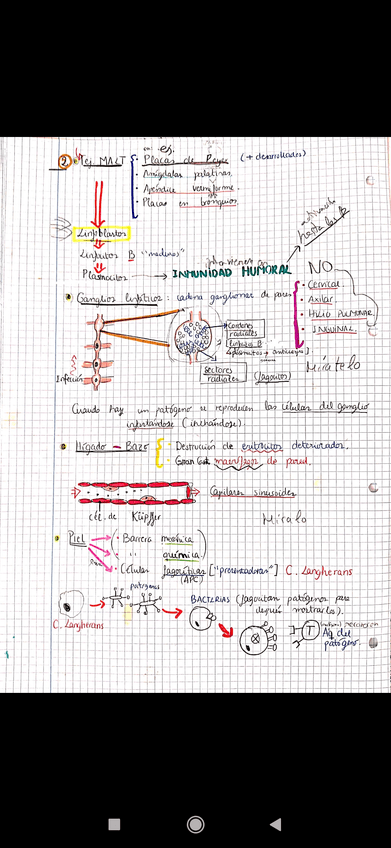 en es.
2. Tej MALT
• Placas de Peyer (+ desarrolladas)
• Amígdalas palatinas
• Apéndice vermiforme
• Placas en bronquios
Linfoblastos
Linfocitos B "maduros"
Plasmocitos → INMUNIDAD HUMORAL
hasta los B
NO
• Cervical
• Axilar
• HILIO PULMONAR
• INGUINAL
• Ganglios linfáticos: cadena ganglionar de pares
Cordones radiales
Linfocitos B
Sectores radiales (fagocitos)
Infección
Míratelo
Cuando hay un patógeno se reproducen las células del ganglio
inflamándose (hinchándose)
• Hígado - Bazo
• Destrucción de eritrocitos deteriorados.
de pared.
Capilares sinusoides
cél. de Küpffer
Míralo
• Piel
• Barrera mecánica
• " " química
• Células fagocíticas ["presentadoras"] C. Langherans
(APC)
patógenos
BACTERIAS (fagocitan patógenos para
después mostrarlos).
C. Langherans
T
Ag del
patógeno.